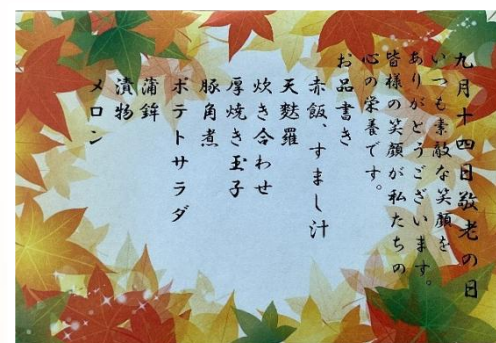 九月十四日敬老の日
いつも素敵な笑顔を
ありがとうございます。
皆様の笑顔が私たちの
心の栄養です。
お品書き
赤飯、すまし汁
天麩羅
炊き合わせ
厚焼き玉子
豚角煮
ポテトサラダ
蒲鉾
漬物
メロン